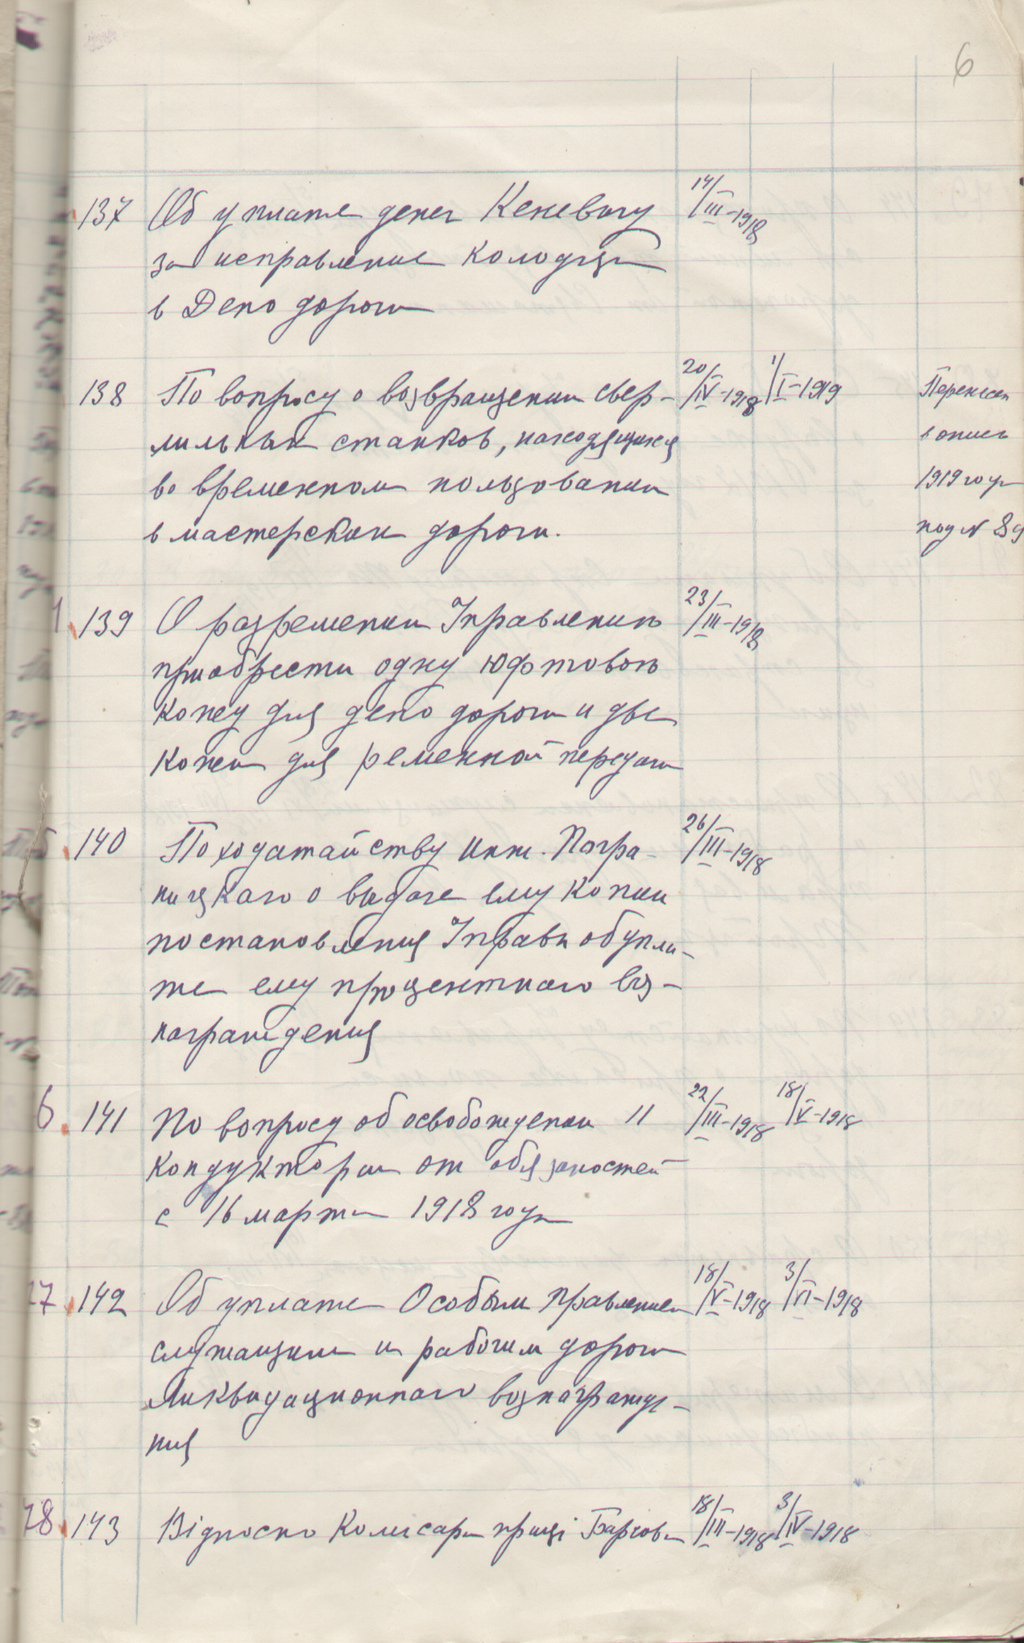 6
137 Об уплате денег Кеневичу 14/III-1918
за исправление колодца
в Депо дороги
138 По вопросу о возвращении свер- 20/IV-1918 1/I-1919 Перенесен
лильных станков, находящихся в опись
во временном пользовании 1919 года
в мастерских дороги. под № 89
139 О разрешении Управлению 23/III-1918
приобрести одну юфтовою
кожу для депо дороги и две
кожи для ременной передачи
140 По ходатайству инж. Погра- 26/III-1918
ницкаго о выдаче ему копии
постановления Управы об упла-
те ему процентного воз-
награждения
6. 141 По вопросу об освобождении 11 22/III-1918 18/V-1918
кондукторов от обязаностей
с 16 марта 1918 года
27. 142 Об уплате Особым правлением 18/V-1918 3/VI-1918
служащим и рабочим дороги
ликвидационного вознагражде-
ния
28. 143 Відносно Комисара праці 18/III-1918 3/IV-1918